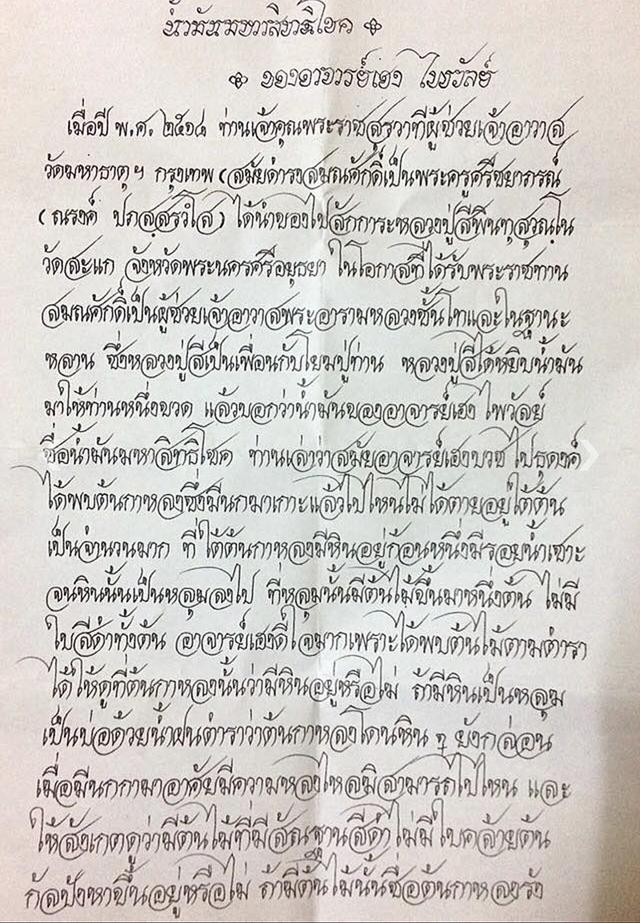 น้ำมันมหาสิทธิโชค
ของอาจารย์เฮง ไพรวัลย์
เมื่อปี พ.ศ. ๒๕๑๘ ท่านเจ้าคุณพระราชสุธาทีผู้ช่วยเจ้าอาวาส
วัดมหาธาตุฯ กรุงเทพ (สมัยดำรงสมณศักดิ์เป็นพระครูศรีชยาภรณ์
(ณรงค์ ปภสฺสรวํโส) ได้นำของไปสักการะหลวงปู่สีพินทุสุวณฺโน
วัดสะแก จังหวัดพระนครศรีอยุธยา ในโอกาสที่ได้รับพระราชทาน
สมณศักดิ์เป็นผู้ช่วยเจ้าอาวาสพระอารามหลวงชั้นโทและในฐานะ
หลาน ซึ่งหลวงปู่สีเป็นเพื่อนกับโยมปู่ท่าน หลวงปู่สีได้หยิบน้ำมัน
มาให้ท่านหนึ่งขวด แล้วบอกว่าน้ำมันของอาจารย์เฮง ไพวัลย์
ชื่อน้ำมันมหาสิทธิโชค ท่านเล่าว่าสมัยอาจารย์เฮงบวช ไปธุดงค์
ได้พบต้นกาหลงซึ่งมีนกมาเกาะแล้วไปไหนไม่ได้ตายอยู่ใต้ต้น
เป็นจำนวนมาก ที่ใต้ต้นกาหลงมีหินอยู่ก้อนหนึ่งมีรอยน้ำเซาะ
จนหินนั้นเป็นหลุมลงไป ที่หลุมนั้นมีต้นไม้ขึ้นมาหนึ่งต้น ไม่มี
ใบสีดำทั้งต้น อาจารย์เฮงดีใจมากเพราะได้พบต้นไม้ตามตำรา
ได้ให้ดูที่ต้นกาหลงนั้นว่ามีหินอยู่หรือไม่ ถ้ามีหินเป็นหลุม
เป็นบ่อด้วยน้ำฝนตำราว่าต้นกาหลงโดนหิน ๆ ยังกล่อน
เมื่อมีนกกามาอาศัยมีความหลงไหลมิสามารถไปไหน และ
ให้สังเกตดูว่ามีต้นไม้ที่มีสัณฐานสีดำไม่มีใบคล้ายต้น
กัลปังหาขึ้นอยู่หรือไม่ ถ้ามีต้นไม้นั้นชื่อต้นกาหลงรัง